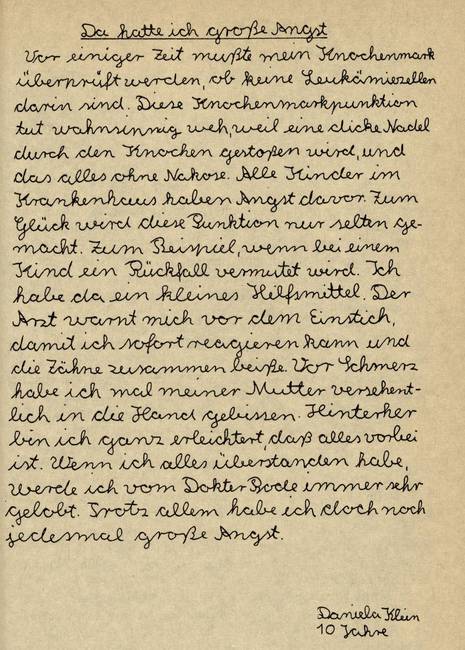 Da hatte ich große Angst
Vor einiger Zeit mußte mein Knochenmark
überprüft werden, ob keine Leukämiezellen
darin sind. Diese Knochenmarkpunktion
tut wahnsinnig weh, weil eine dicke Nadel
durch den Knochen gestoßen wird, und
das alles ohne Nakose. Alle Kinder im
Krankenhaus haben Angst davor. Zum
Glück wird diese Punktion nur selten ge-
macht. Zum Beispiel, wenn bei einem
Kind ein Rückfall vermutet wird. Ich
habe da ein kleines Hilfsmittel. Der
Arzt warnt mich vor dem Einstich,
damit ich sofort reagieren kann und
die Zähne zusammen beiße. Vor Schmerz
habe ich mal meiner Mutter versehent-
lich in die Hand gebissen. Hinterher
bin ich ganz erleichtert, daß alles vorbei
ist. Wenn ich alles überstanden habe,
werde ich vom Dokter Bode immer sehr
gelobt. Trotz allem habe ich doch noch
jedesmal große Angst.
Daniela Klein
10 Jahre